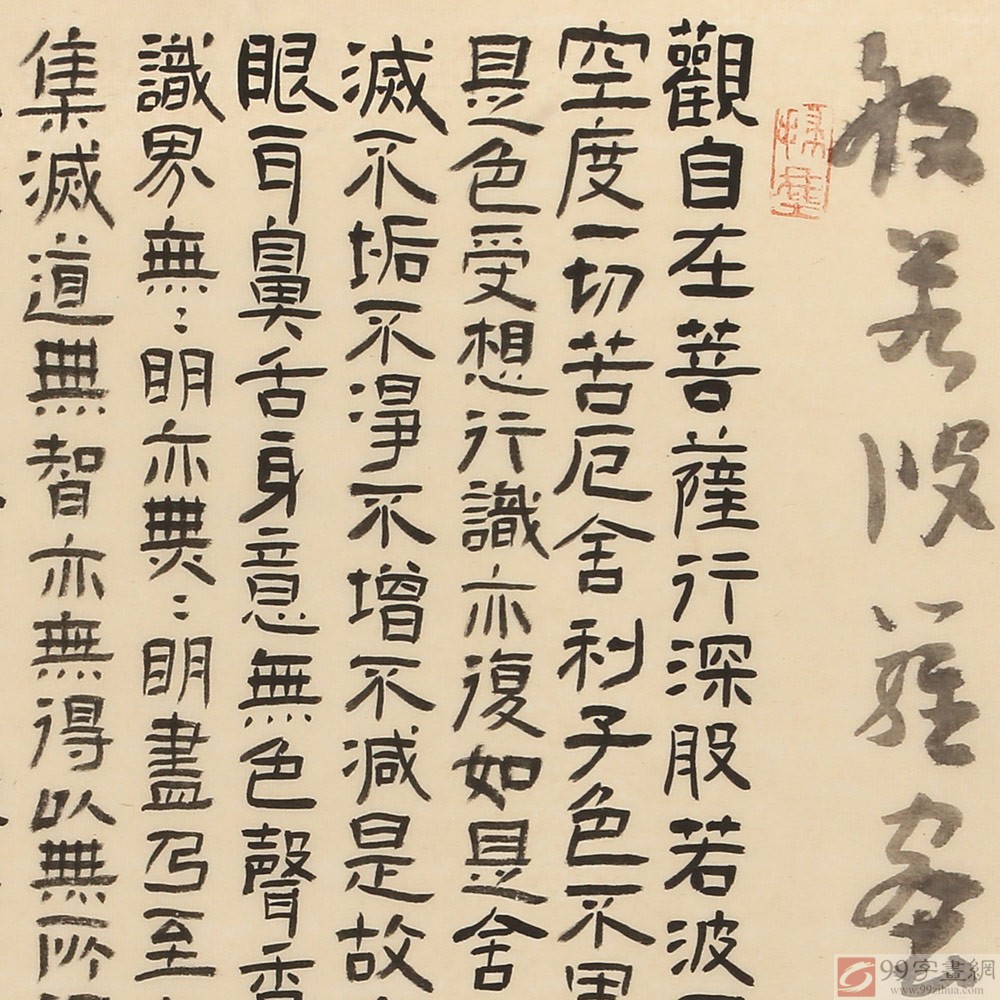 般若波羅蜜
觀自在菩薩行深般若波
空度一切苦厄舍利子色不異
是色受想行識亦復如是舍
滅不垢不淨不增不減是故
眼耳鼻舌身意無色聲香
識界無〻明亦無〻明盡乃至
集滅道無智亦無得以無所得
99字畫網
www.99zihua.com